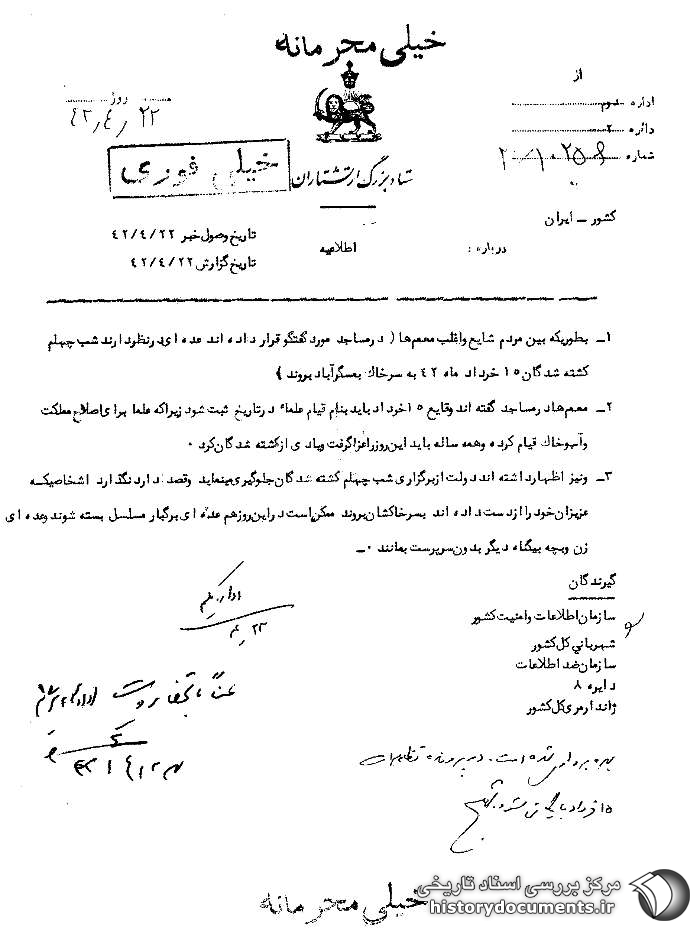 خیلی محرمانه
از
اداره دوم
دائره ۲
شماره
روز
۴۲/۴/۲۲
خیلی فوری
ستاد بزرگ ارتشتاران
کشور ــ ایران
درباره :
اطلاعیه
تاریخ وصول خبر ۴۲/۴/۲۲
تاریخ گزارش ۴۲/۴/۲۲
۱ــ بطوریکه بین مردم شایع واغلب معمم‌ها ( در مساجد مورد گفتگو قرار داده اند عده ای در نظر دارند شب چهلم
کشته شدگان ۱۵ خرداد ماه ۴۲ به سرخاک بعسگرآباد بروند )
۲ــ معمم‌ها در مساجد گفته اند وقایع ۱۵ خرداد باید بنام قیام علماء در تاریخ ثبت شود زیرا که علما برای اصلاح مملکت
وآب و خاک قیام کرده و همه ساله باید این روز را عزا گرفت و یادی از کشته شدگان کرد ۰
۳ــ و نیز اظهار داشته اند دولت از برگزاری شب چهلم کشته شدگان جلوگیری مینماید و قصد دارد نگذارد اشخاصیکه
عزیزان خود را از دست داده اند بسرخاکشان بروند ممکن است در این روز هم عده ای برگبار مسلسل بسته شوند و عده ای
زن و بچه بیگناه دیگر بدون سرپرست بمانند ۰ــ
گیرندگان
سازمان اطلاعات و امنیت کشور
شهربانی کل کشور
سازمان ضد اطلاعات
دایره ۸
ژاندارمری کل کشور
۴/۲۳
در پرونده تظاهرات
۱۵ خرداد بایگانی شود
خیلی محرمانه
مرکز بررسی اسناد تاریخی
historydocuments.ir